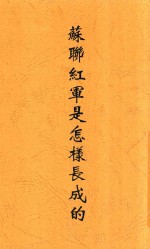 蘇聯紅軍是怎樣長成的